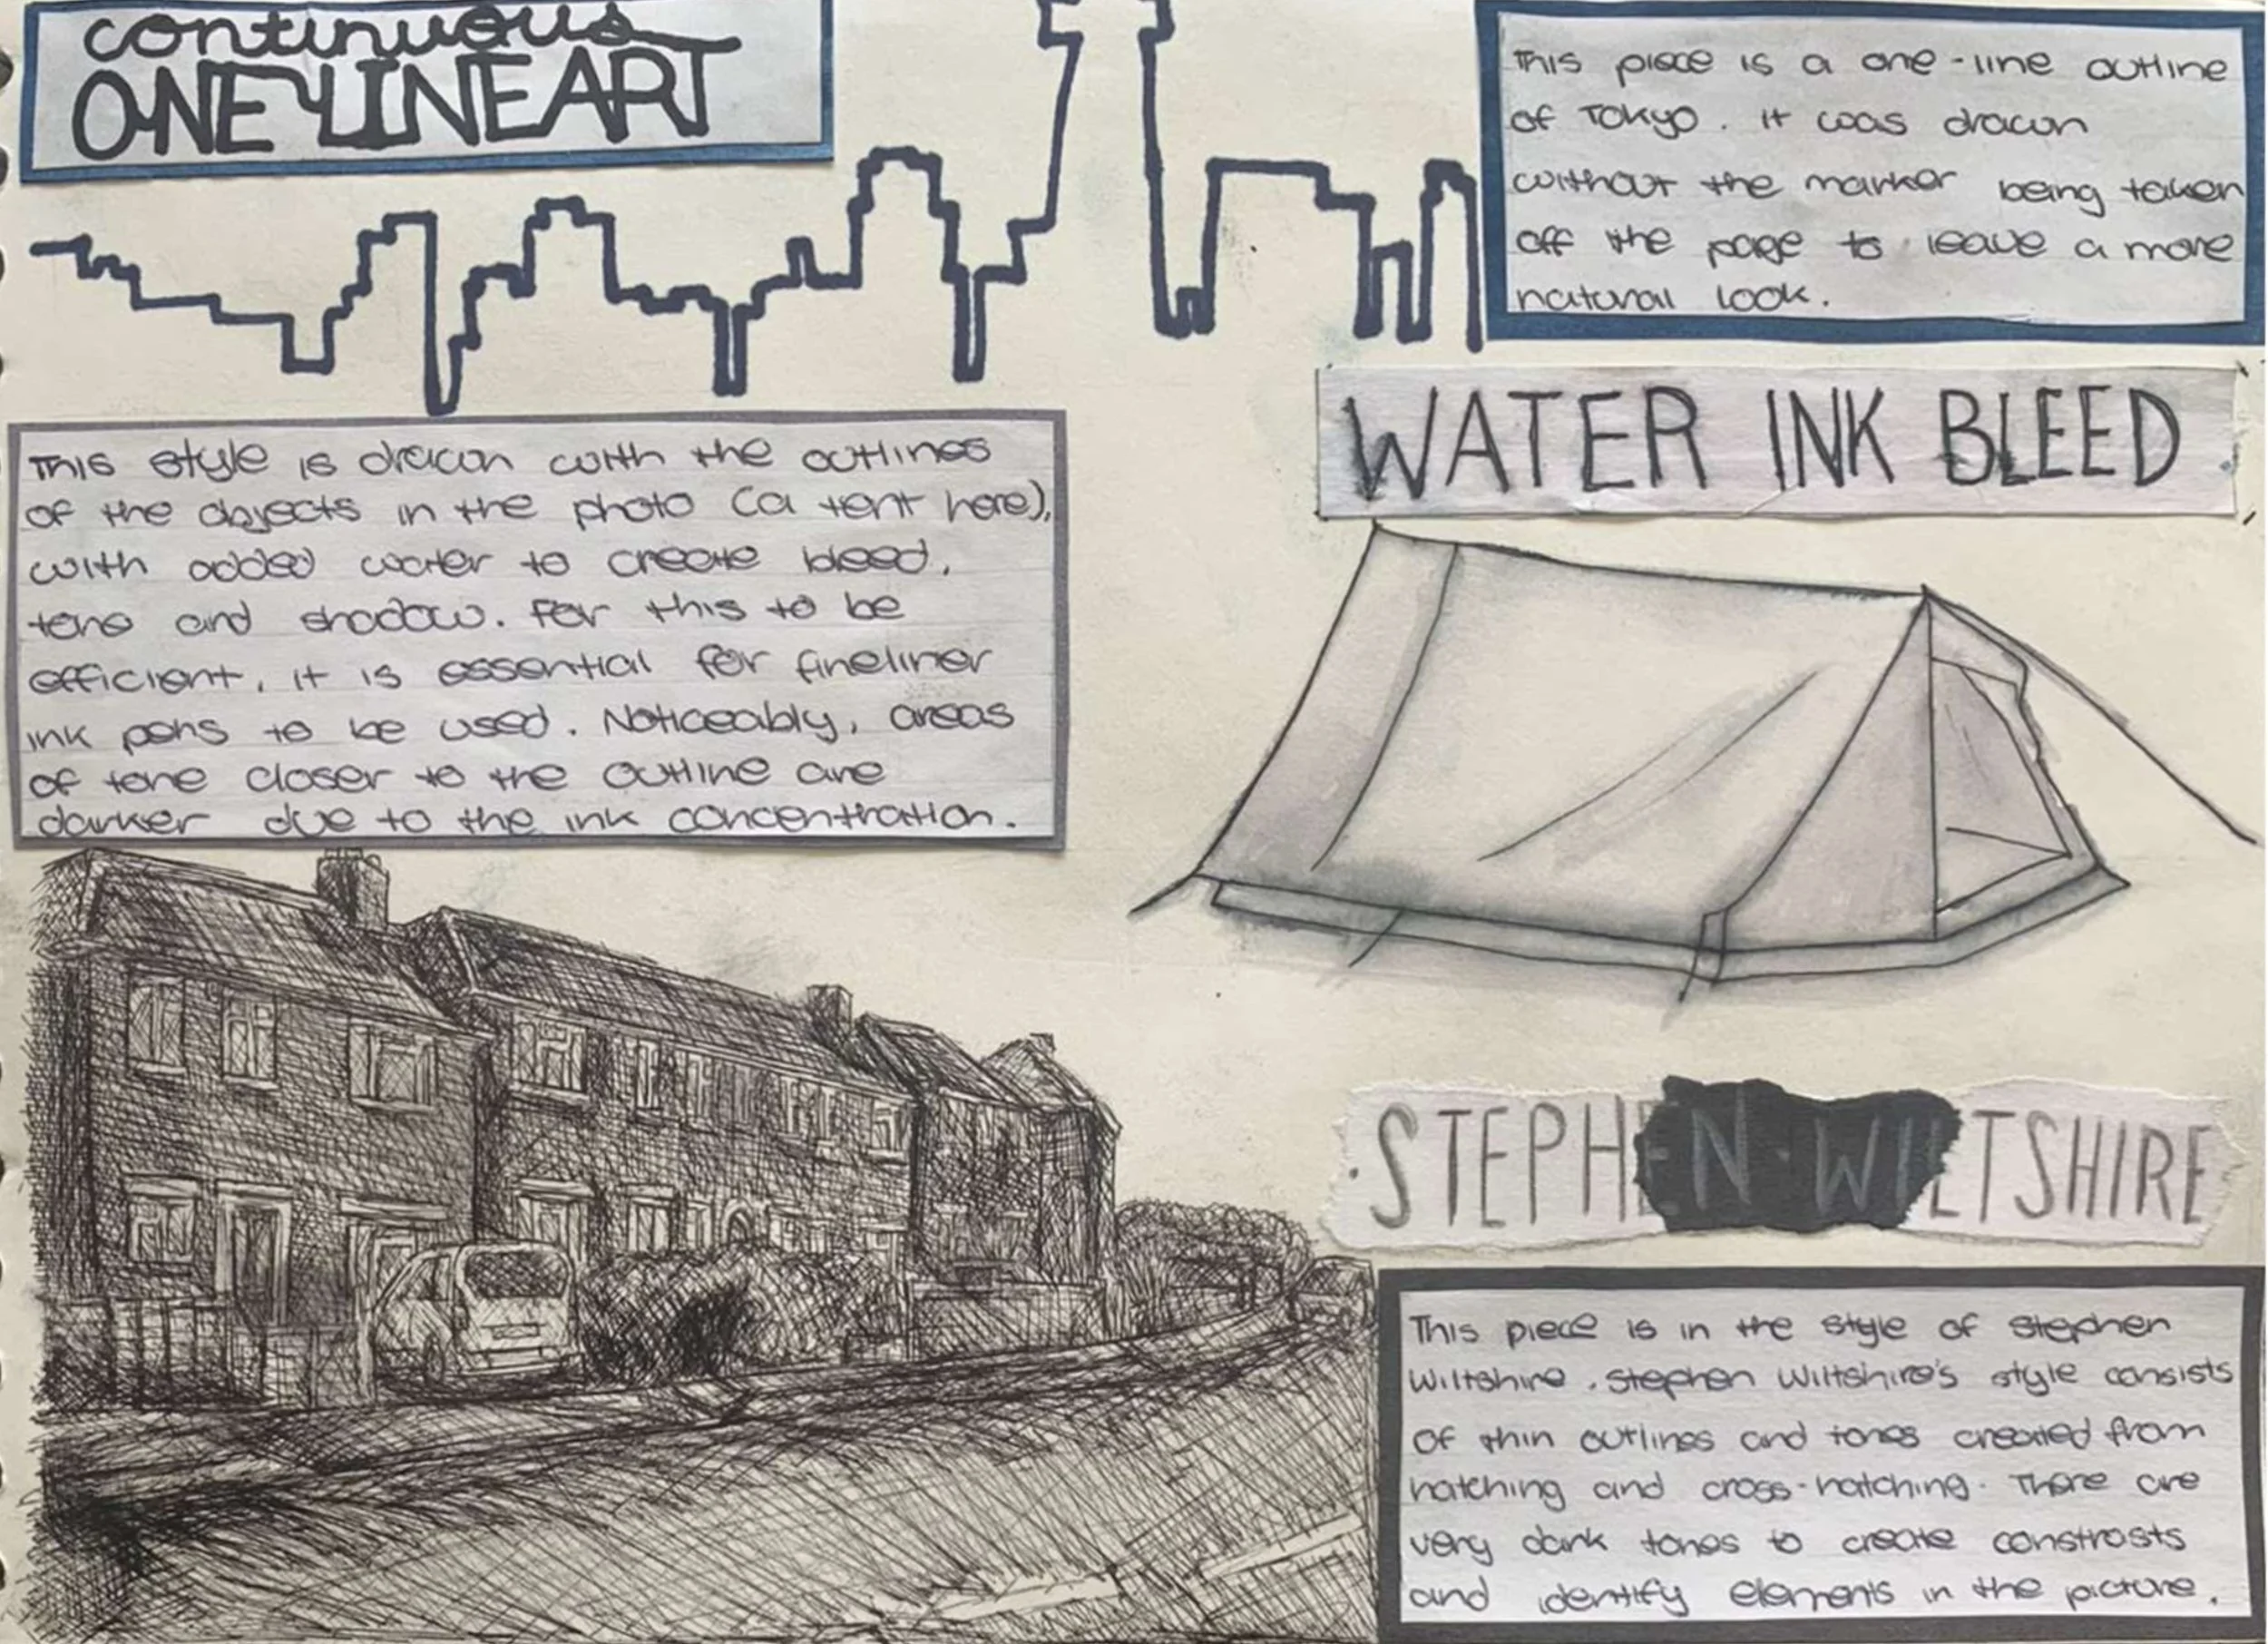 continuous
ONE LINE ART
This piece is a one-line outline
of Tokyo. it was drawn
without the marker being taken
off the page to leave a more
natural look.
WATER INK BLEED
This style is drawn with the outlines
of the objects in the photo (a tent here),
with added water to create bleed,
tone and shadow. For this to be
efficient, it is essential for fineliner
ink pens to be used. Noticeably, areas
of tone closer to the outline are
darker due to the ink concentration.
·STEPHEN·WILTSHIRE
This piece is in the style of Stephen
Wiltshire. Stephen Wiltshire's style consists
of thin outlines and tones created from
hatching and cross-hatching. There are
very dark tones to create constrasts
and identify elements in the picture.